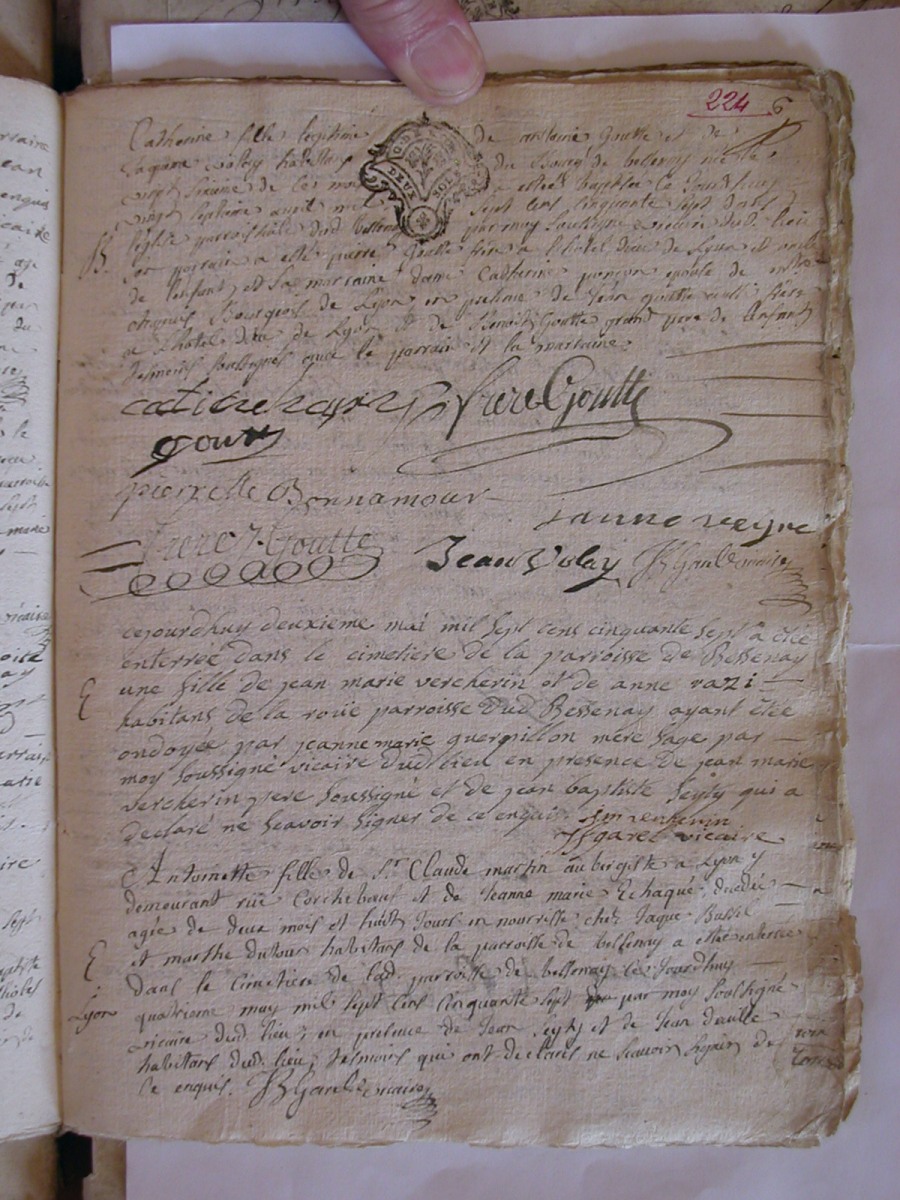 224 6
Catherine fille legitime de antoine Goutte et de
Jaqueme voley habitans du Bourg de bessenay née le
vingt sixieme de ce mois a esté baptisée ce jourdhuy
vingt septieme avril mil sept cens cinquante sept dans
l'eglise parroissiale dud bessenay par moy soussigné vicaire dud. lieu
B. son parrain a esté pierre Goutte frere a l'hotel dieu de Lyon et oncle
de l'enfant, et sa marraine dame Catherine épouse de
Bourgeois de Lyon en presence de Jean goutte aussi frere
a l'hotel dieu de Lyon et de Benoit Goutte grand pere de l'enfant
tesmoins soussignes avec le parrain et la marraine.
frere Goutte
goutte
pierrette Bonnamour
janne veyre
frere J. Goutte
Jean Voley JfGarel vicaire
cejourdhuy deuxième mai mil sept cens cinquante sept a étée
enterrée dans le cimetiere de la parroisse de Bessenay
E une fille de jean marie vercherin et de anne razi
habitans de la roüe parroisse dud Bessenay ayant étée
ondoyée par jeanne marie guerpillon mere sage par
moy soussigné vicaire dud lieu en presence de jean marie
vercherin pere soussigné et de jean baptiste seyty qui a
declaré ne scavoir signer de ce enquis. jm vercherin
Jfgarel vicaire
Antoinette fille de Sr. Claude martin aubergiste a Lyon y
demeurant rüe Corchebœuf et de Jeanne marie Echaqué decedée
agée de deux mois et huit jours en nourrisse chez Jaque Bassel
E et marthe dutour habitans de la parroisse de bessenay a esté enterrée
dans le Cimetiere de lad. parroisse de bessenay ce jourdhuy
Lyon quatrieme may mil sept cens cinquante sept par moy soussigné
vicaire dud lieu, en presence de Jean seyty et de Jean
habitans dud. lieu, tesmoins qui ont declarés ne scavoir signer de
ce enquis. JfGarel vicaire